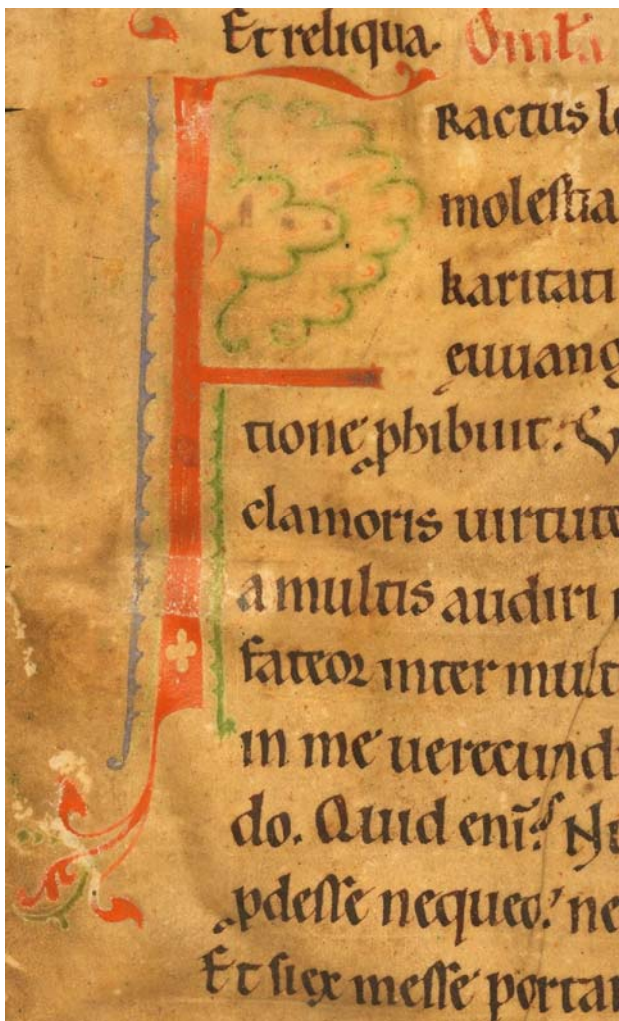 Et reliqua. Omɫa
FRactus lo
molestia
karitati
ęuuang
tionę phibuit. V
clamoris uirtute
a multis audiri
fateor inter mult
in me uerecund
do. Quid enī? No
pdesse nequeo? ne
Et si ex messe portar